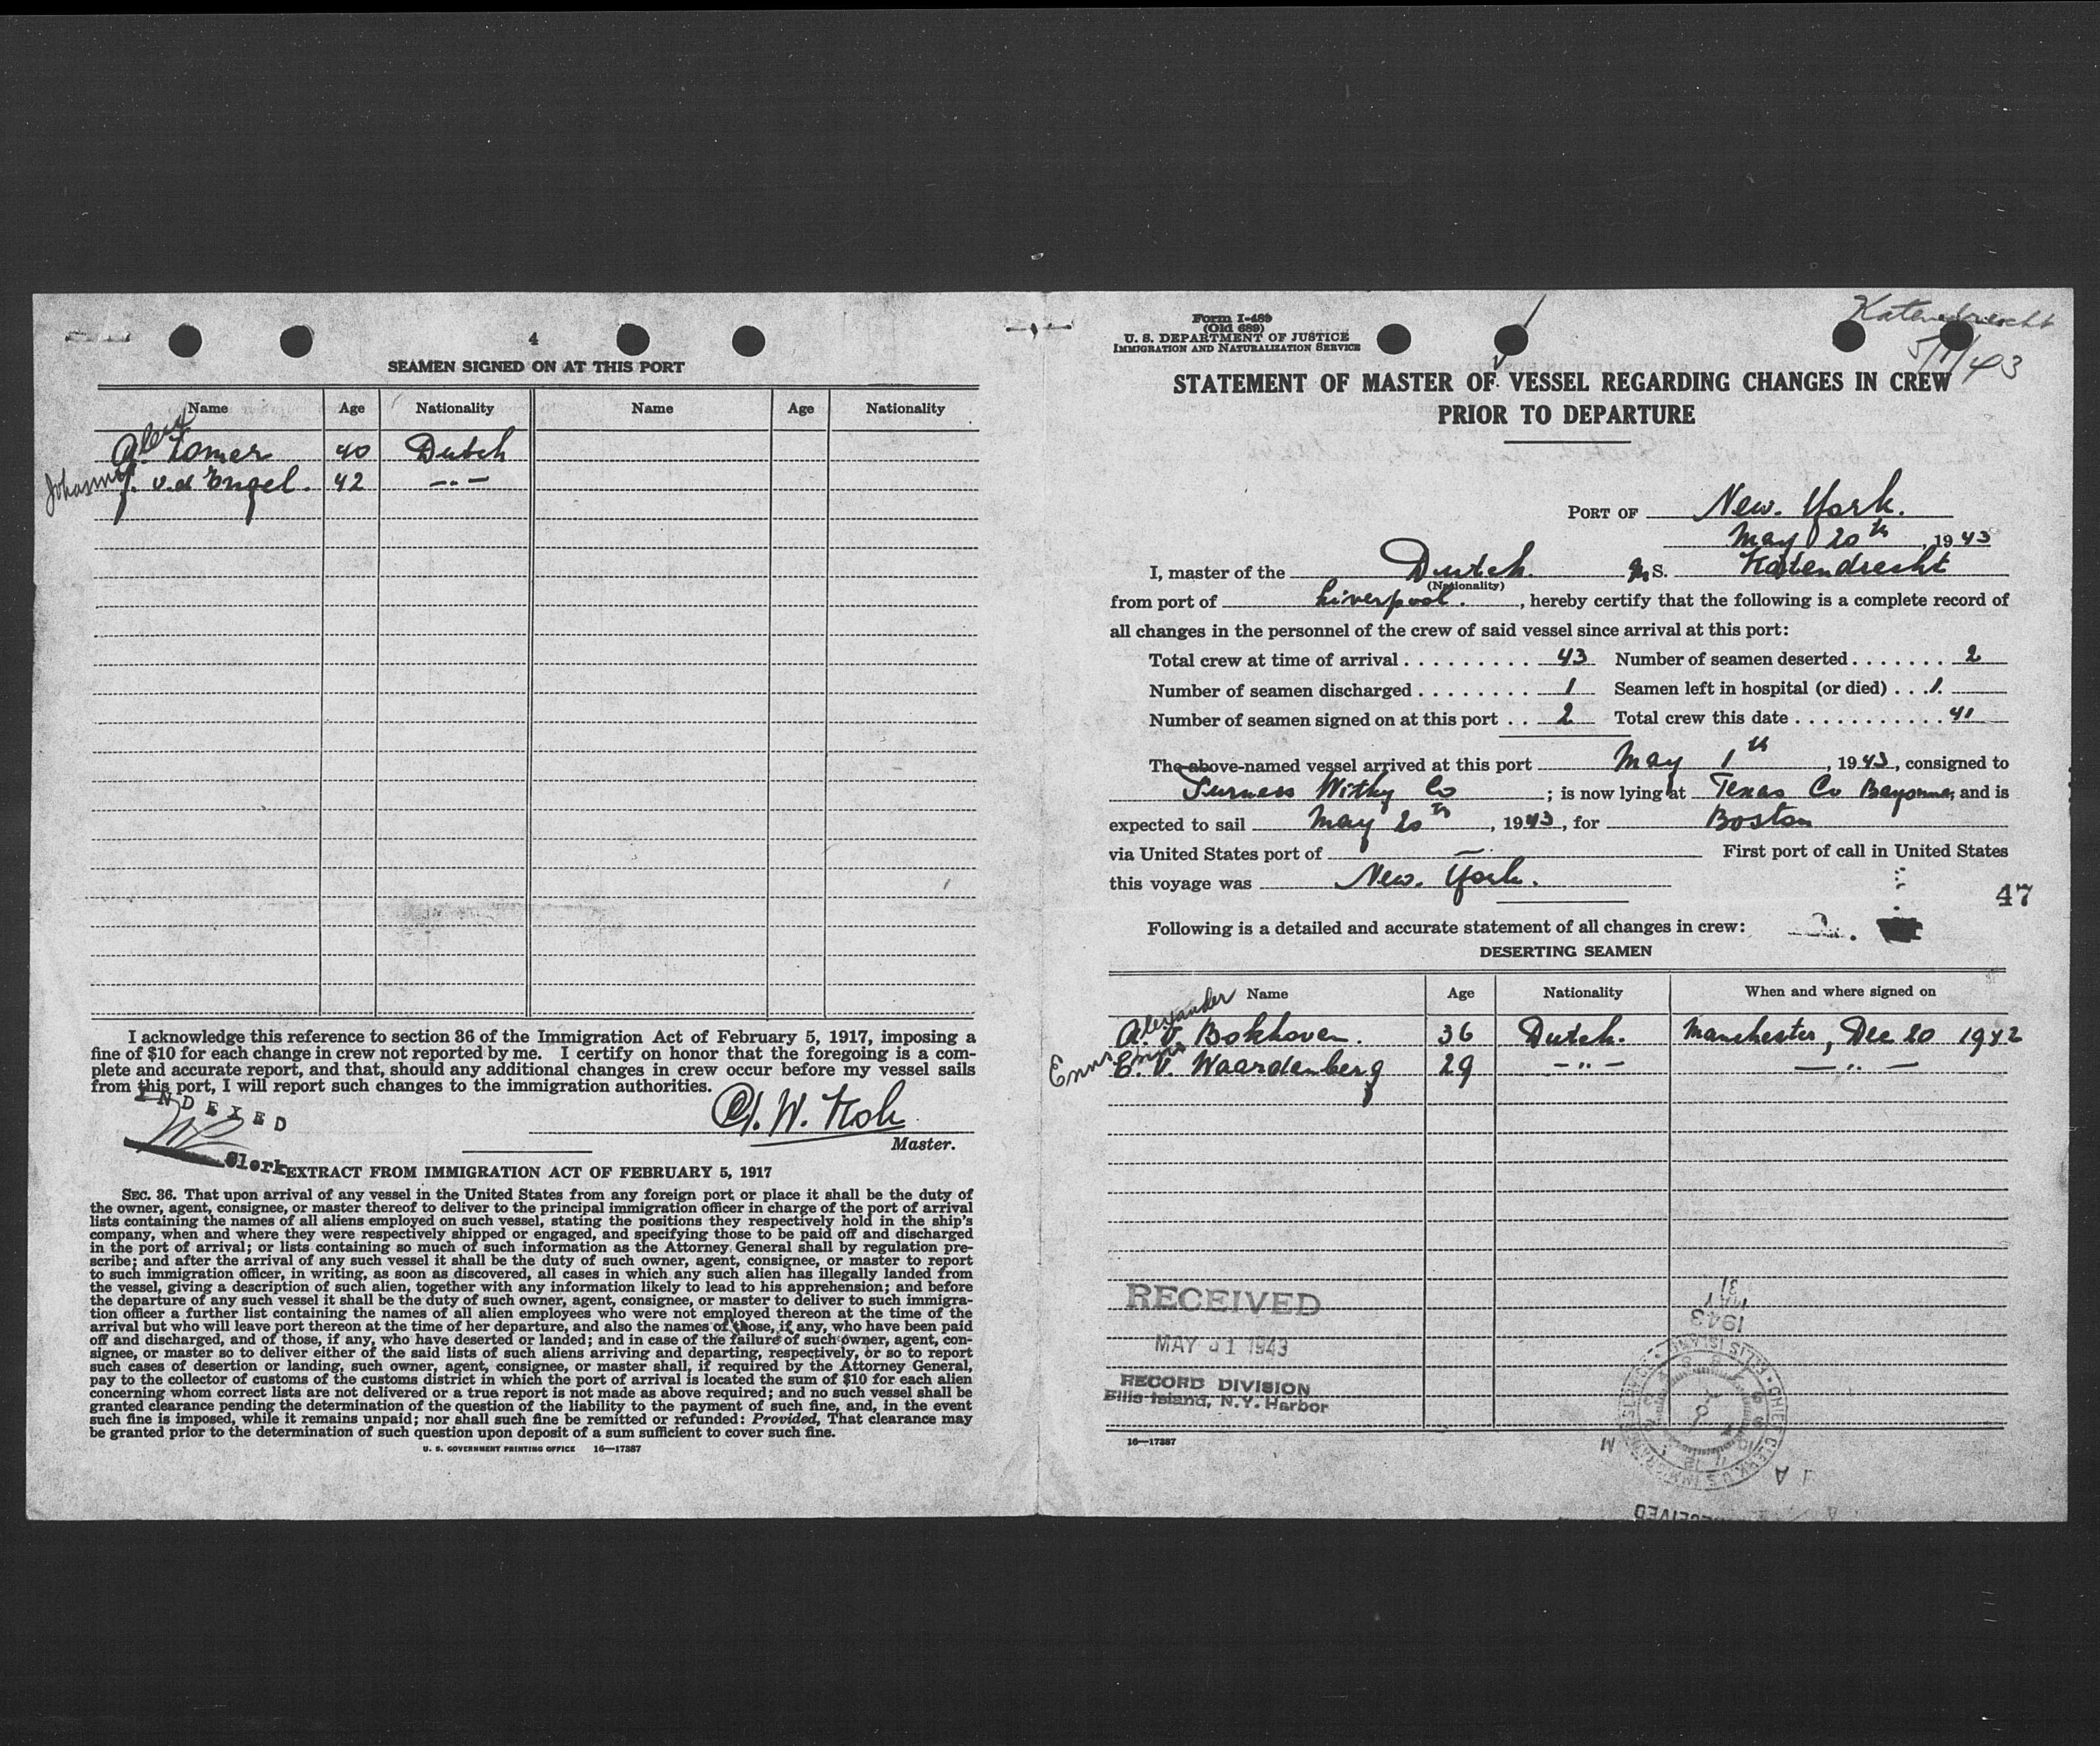 4
SEAMEN SIGNED ON AT THIS PORT
Name Age Nationality Name Age Nationality
Alex
A. Lomer 40 Dutch
J. v.d Engel. 42 —"—
I acknowledge this reference to section 36 of the Immigration Act of February 5, 1917, imposing a
fine of $10 for each change in crew not reported by me. I certify on honor that the foregoing is a com-
plete and accurate report, and that, should any additional changes in crew occur before my vessel sails
from this port, I will report such changes to the immigration authorities.
INDEXED
Master.
Clerk
EXTRACT FROM IMMIGRATION ACT OF FEBRUARY 5, 1917
SEC. 36. That upon arrival of any vessel in the United States from any foreign port or place it shall be the duty of
the owner, agent, consignee, or master thereof to deliver to the principal immigration officer in charge of the port of arrival
lists containing the names of all aliens employed on such vessel, stating the positions they respectively hold in the ship's
company, when and where they were respectively shipped or engaged, and specifying those to be paid off and discharged
in the port of arrival; or lists containing so much of such information as the Attorney General shall by regulation pre-
scribe; and after the arrival of any such vessel it shall be the duty of such owner, agent, consignee, or master to report
to such immigration officer, in writing, as soon as discovered, all cases in which any such alien has illegally landed from
the vessel, giving a description of such alien, together with any information likely to lead to his apprehension; and before
the departure of any such vessel it shall be the duty of such owner, agent, consignee, or master to deliver to such immigra-
tion officer a further list containing the names of all alien employees who were not employed thereon at the time of the
arrival but who will leave port thereon at the time of her departure, and also the names of those, if any, who have been paid
off and discharged, and of those, if any, who have deserted or landed; and in case of the failure of such owner, agent, con-
signee, or master so to deliver either of the said lists of such aliens arriving and departing, respectively, or so to report
such cases of desertion or landing, such owner, agent, consignee, or master shall, if required by the Attorney General,
pay to the collector of customs of the customs district in which the port of arrival is located the sum of $10 for each alien
concerning whom correct lists are not delivered or a true report is not made as above required; and no such vessel shall be
granted clearance pending the determination of the question of the liability to the payment of such fine, and, in the event
such fine is imposed, while it remains unpaid; nor shall such fine be remitted or refunded: Provided, That clearance may
be granted prior to the determination of such question upon deposit of a sum sufficient to cover such fine.
U. S. GOVERNMENT PRINTING OFFICE 16—17387
Katendrecht
5/1/43
Form I-489
(Old 689)
U. S. DEPARTMENT OF JUSTICE
IMMIGRATION AND NATURALIZATION SERVICE
STATEMENT OF MASTER OF VESSEL REGARDING CHANGES IN CREW
PRIOR TO DEPARTURE
PORT OF New. York.
May 20th, 1943
I, master of the Dutch. M S. Katendrecht
(Nationality)
from port of Liverpool., hereby certify that the following is a complete record of
all changes in the personnel of the crew of said vessel since arrival at this port:
Total crew at time of arrival . . . . . . . . . 43 Number of seamen deserted . . . . . . . 2
Number of seamen discharged . . . . . . . . 1 Seamen left in hospital (or died) . . . 1.
Number of seamen signed on at this port . . 2 Total crew this date . . . . . . . . . . . 41
The above-named vessel arrived at this port May 1th, 1943, consigned to
Furness Withy Co; is now lying at Texas Co Bayonne, and is
expected to sail May 20th, 1943, for Boston
via United States port of — First port of call in United States
this voyage was New. York.
47
Following is a detailed and accurate statement of all changes in crew:
DESERTING SEAMEN
Name Age Nationality When and where signed on
Alexander
A. V. Bokhoven. 36 Dutch. Manchester, Dec 20 1942
E. V. Waardenberg 29 —"— —"—
RECEIVED
MAY 31 1943
RECORD DIVISION
Ellis Island, N.Y. Harbor
1943
16—17387
RECEIVED